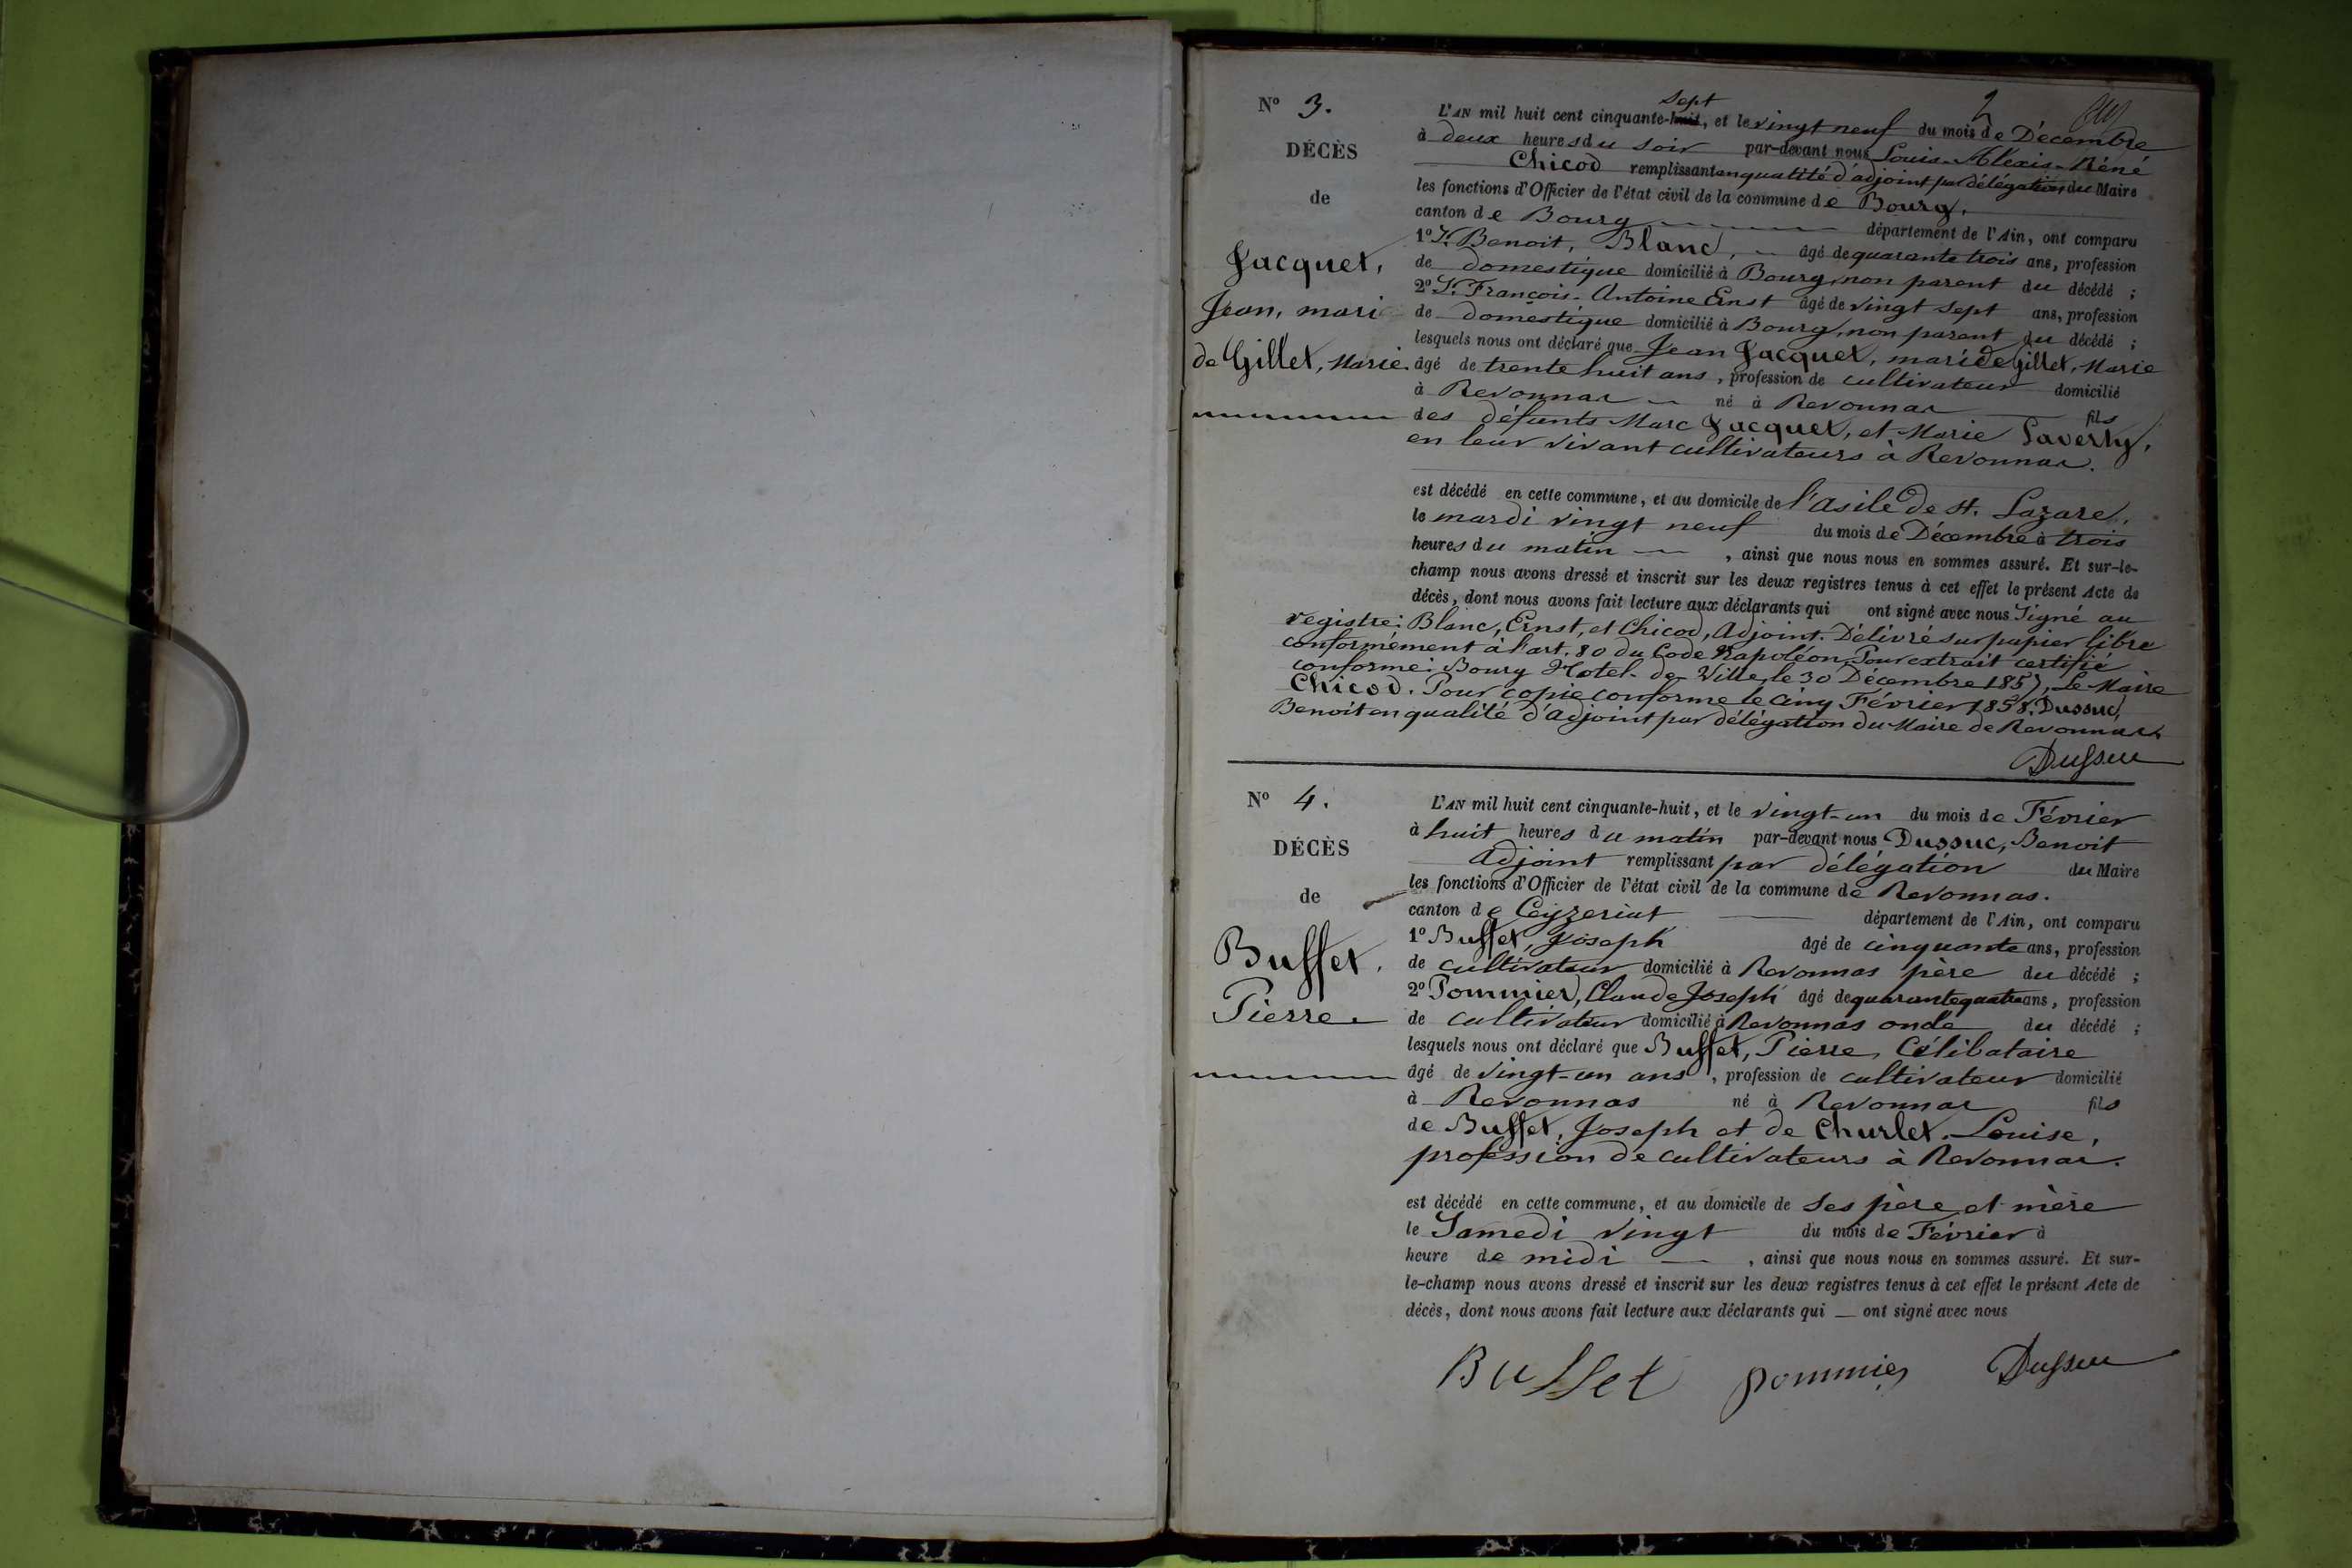 2
N° 3.
DÉCÈS
de
Jacquet,
Jean, mari
de Gillet, Marie.
L'AN mil huit cent cinquante-huit, sept et le vingt neuf du mois de Décembre
à deux heures du soir par-devant nous Louis-Aléxis-Réné
Chicod remplissant en qualité d'adjoint par délégation du Maire
les fonctions d'Officier de l'état civil de la commune de Bourg,
canton de Bourg département de l'Ain, ont comparu
1° Sr. Benoit, Blanc, âgé de quarante trois ans, profession
de domestique domicilié à Bourg, non parent du décédé ;
2° Sr. François-Antoine Ernst âgé de vingt sept ans, profession
de domestique domicilié à Bourg, non parent du décédé ;
lesquels nous ont déclaré que Jean Jacquet, mari de Gillet, Marie
âgé de trente huit ans, profession de cultivateur domicilié
à Revonnas né à Revonnas fils
des défunts Marc Jacquet, et Marie Paverty,
en leur vivant cultivateurs à Revonnas.
est décédé en cette commune, et au domicile de l'asile de St. Lazare,
le mardi vingt neuf du mois de Décembre à trois
heures du matin , ainsi que nous nous en sommes assuré. Et sur-le-
champ nous avons dressé et inscrit sur les deux registres tenus à cet effet le présent Acte de
décès, dont nous avons fait lecture aux déclarants qui ont signé avec nous Signé au
registre: Blanc, Ernst, et Chicod, Adjoint. Délivré sur papier libre
conformément à l'art. 80 du Code Napoléon, Pour extrait certifié
conforme: Bourg Hotel-de-Ville, le 30 Décembre 1857, Le Maire
Chicod. Pour copie conforme le cinq Février 1858. Dussuc,
Benoit en qualité d'adjoint par délégation du Maire de Revonnas.
Dussuc
N° 4.
DÉCÈS
de
Buffet,
Pierre.
L'AN mil huit cent cinquante-huit, et le vingt-un du mois de Février
à huit heures du matin par-devant nous Dussuc, Benoit
adjoint remplissant par délégation du Maire
les fonctions d'Officier de l'état civil de la commune de Revonnas.
canton de Ceyzeriat département de l'Ain, ont comparu
1° Buffet, Joseph âgé de cinquante ans, profession
de cultivateur domicilié à Revonnas père du décédé ;
2° Pommier, Claude Joseph âgé de quarante quatre ans, profession
de cultivateur domicilié à Revonnas oncle du décédé ;
lesquels nous ont déclaré que Buffet, Pierre, Célibataire
âgé de vingt-un ans, profession de cultivateur domicilié
à Revonnas né à Revonnas fils
de Buffet, Joseph et de Churlet, Louise,
profession de cultivateurs à Revonnas.
est décédé en cette commune, et au domicile de ses père et mère
le Samedi vingt du mois de Février à
heure de midi , ainsi que nous nous en sommes assuré. Et sur-
le-champ nous avons dressé et inscrit sur les deux registres tenus à cet effet le présent Acte de
décès, dont nous avons fait lecture aux déclarants qui — ont signé avec nous
Buffet pommier Dussuc